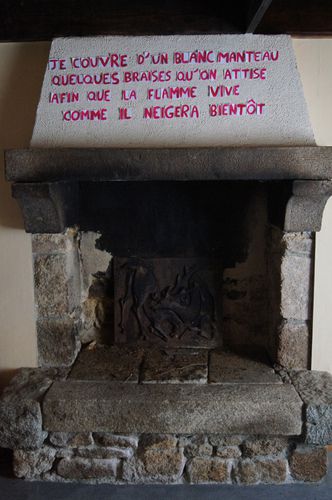 JE COUVRE D'UN BLANC MANTEAU
QUELQUES BRAISES QU'ON ATTISE
AFIN QUE LA FLAMME VIVE
COMME IL NEIGERA BIENTÔT